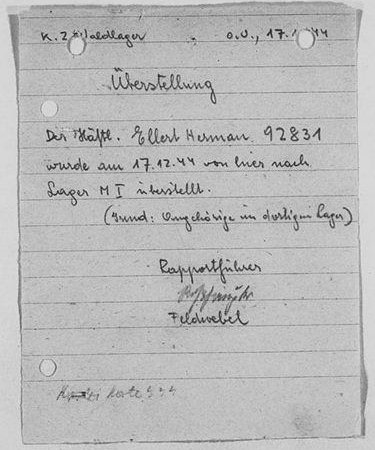 K. Z. Waldlager , O.U., 17.1 44
Überstellung
Der Häftl. Ellert Herman 92831
wurde am 17.12.44 von hier nach
Lager M I überstellt.
(Grund: Angehörige im dortigen Lager)
Rapportführer
Feldwebel
Karte